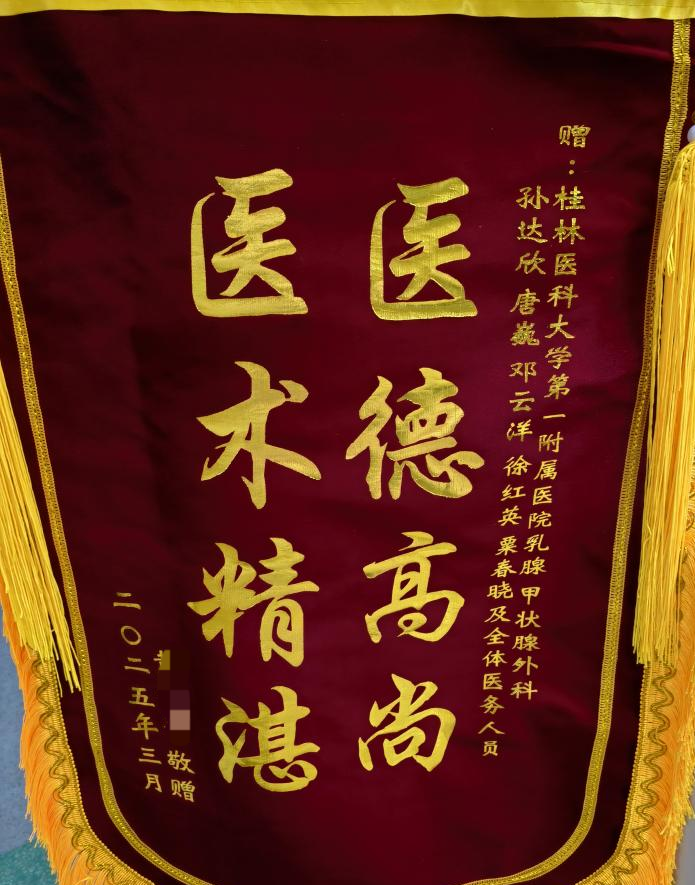 赠：桂林医科大学第一附属医院乳腺甲状腺外科
孙达欣 唐巍 邓云洋 徐红英 粟春晓及全体医务人员
医德高尚
医术精湛
敬赠
二〇二五年三月